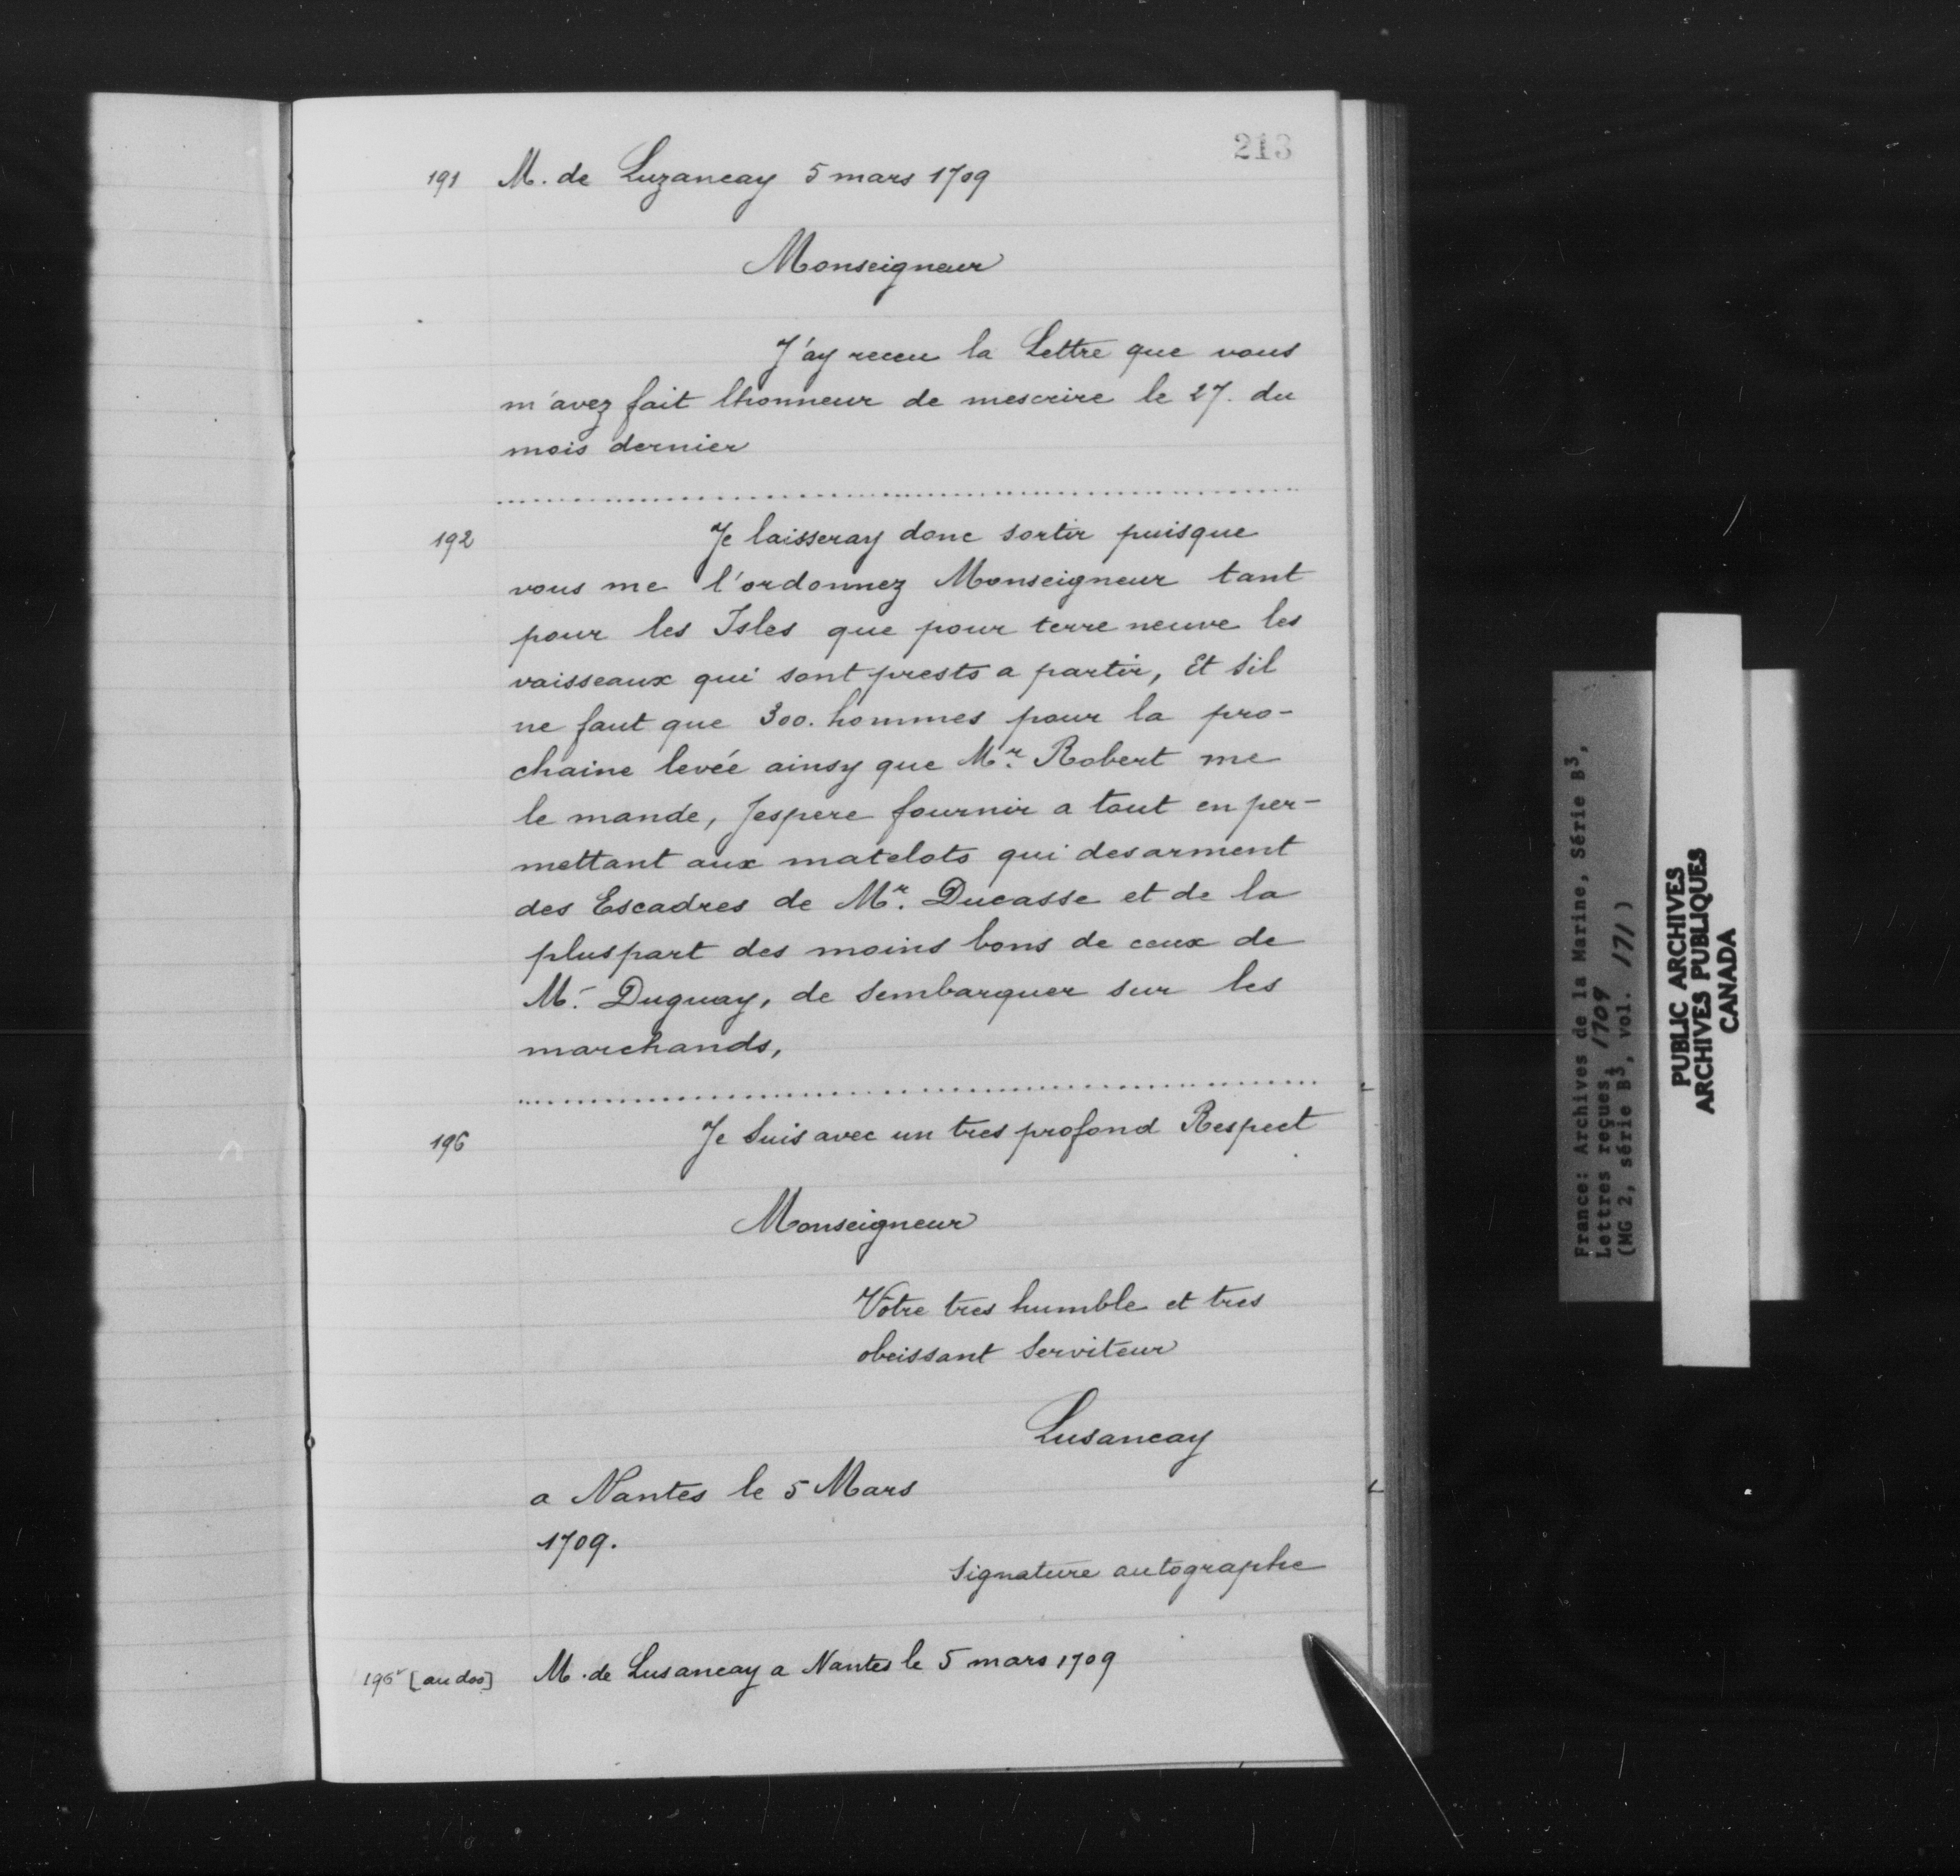 213
191 M. de Luzancay 5 mars 1709
Monseigneur
J'ay receu la Lettre que vous
m'avez fait lhonneur de mescrire le 27. du
mois dernier
192 Je laisseray donc sortir puisque
vous me l'ordonnez Monseigneur tant
pour les Isles que pour terre neuve les
vaisseaux qui sont prests a partir, Et sil
ne faut que 300. hommes pour la pro-
chaine levée ainsy que Mr. Robert me
le mande, Jespere fournir a tout en per-
mettant aux matelots qui desarment
des Escadres de Mr. Ducasse et de la
pluspart des moins bons de ceux de
Mr. Duguay, de sembarquer sur les
marchands,
196 Je suis avec un tres profond Respect
Monseigneur
Votre tres humble et tres
obeissant serviteur
Lusancay
a Nantes le 5 Mars
1709.
signature autographe
196v [au dos] M. de Lusancay a Nantes le 5 mars 1709
France: Archives de la Marine, Série B3,
Lettres reçues, 1709
(MG 2, série B3, vol. 171)
PUBLIC ARCHIVES
ARCHIVES PUBLIQUES
CANADA